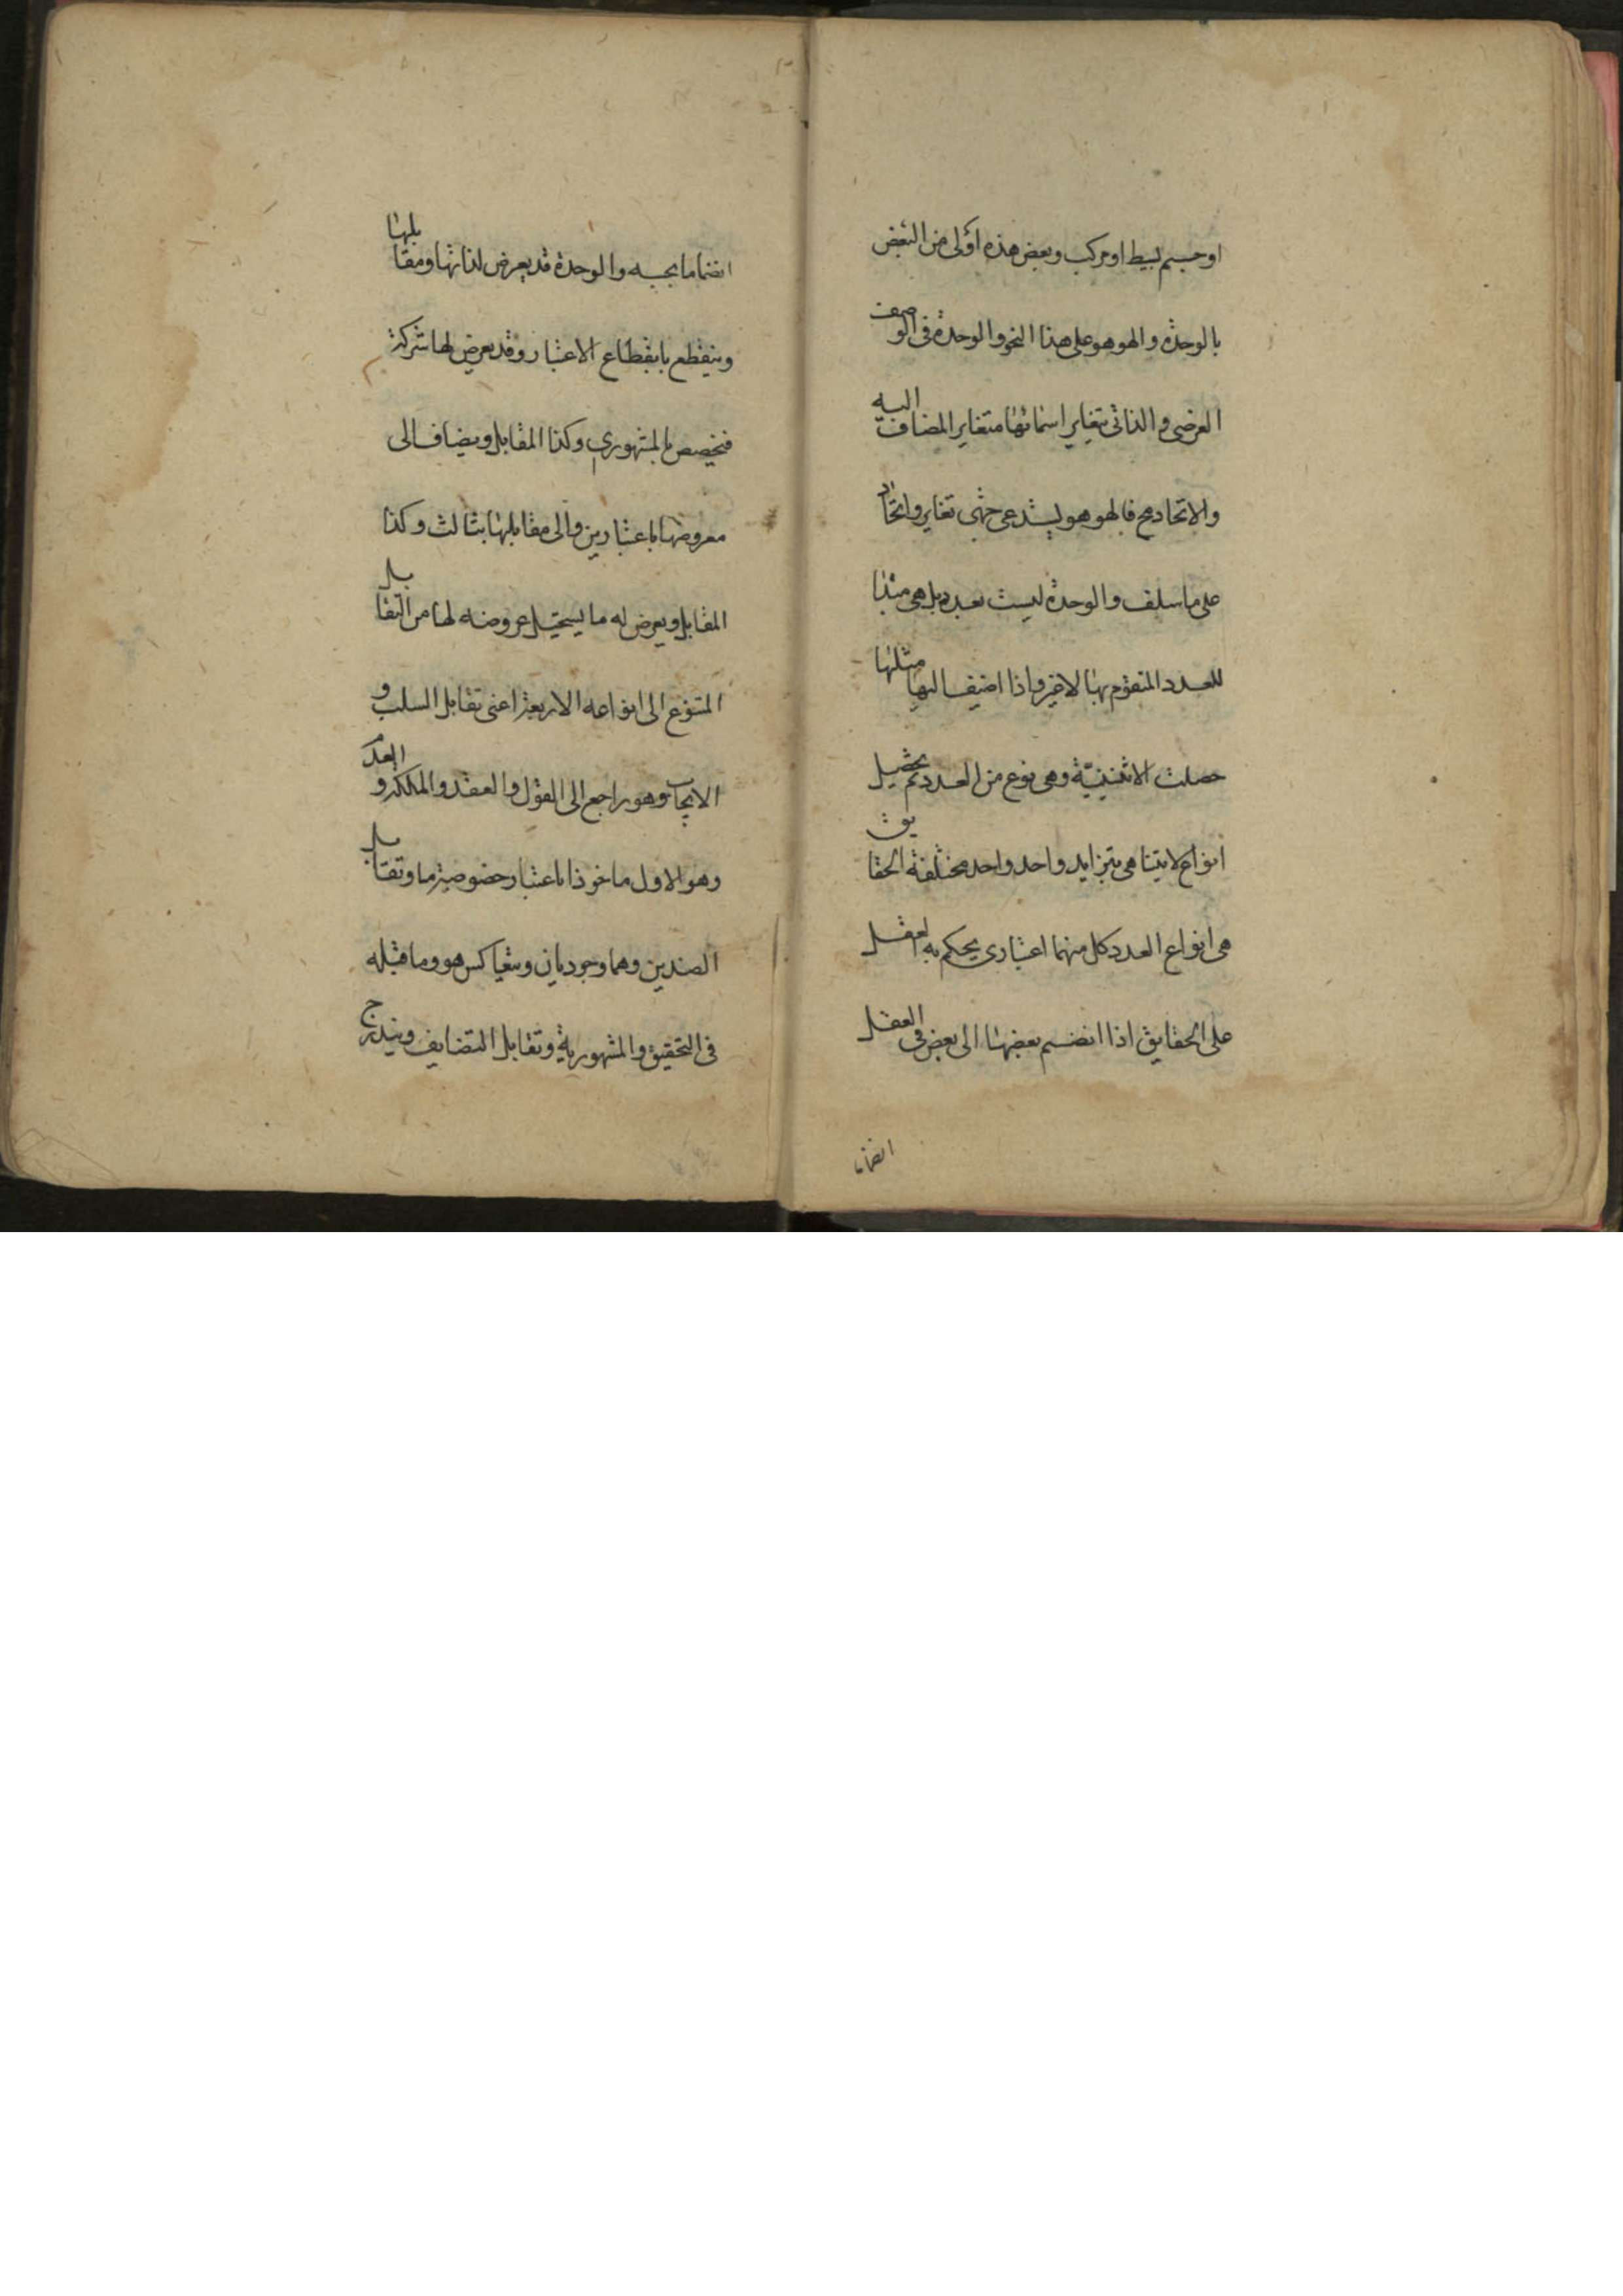 او جسم بسيط او مركب وبعض هذه اولى من البعض
بالوحدة والهو هو على هذا النحو والوحدة فى الوصف
العرضى والذاتى يتغاير اسمائها متغاير المضاف اليه
والاتحاد مح فالهو هو يستدعى جهتى تغاير واتحاد
على ما سلف والوحدة ليست بعدد بل هى مبدأ
للعدد المتقوم بها لا غير واذا اضيف اليها مثلها
حصلت الاثنينية وهى نوع من العدد ثم يحصل
انواع لا يتناهى بتزايد واحد واحد مختلفة الحقايق
هى انواع العدد كل منهما اعتبارى يحكم به العقل
على الحقايق اذا انضم بعضها الى بعض فى العقل
انضما
انضماما بحسبه والوحدة قد يعرض لذاتها ومقابلها
وينقطع بانقطاع الاعتبار وقد يعرض لها شركة
فتخصص بالمشهورى وكذا المقابل ويضاف الى
معروضها باعتبارين والى مقابلها بثالث وكذا
المقابل ويعرض له ما يستحيل عروضه لها من التقابل
المتنوع الى انواعه الاربعة اعنى تقابل السلب و
الايجاب وهو راجع الى القول والعقد والملكة و العدم
وهو الاول ماخوذا باعتبار خصوصية ما وتقابل
الضدين وهما وجوديان ويتعاكس هو وما قبله
فى التحقيق والمشهورية وتقابل التضايف ويندرج